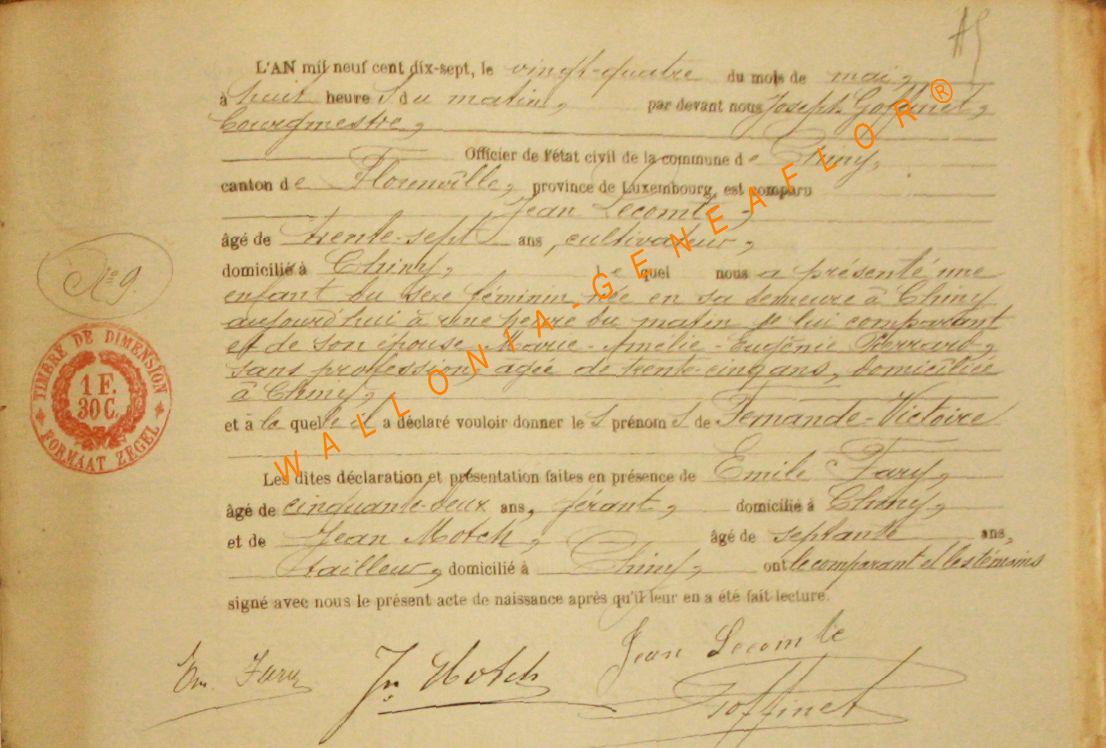 L'AN mil neuf cent dix-sept, le vingt-quatre du mois de mai,
à huit heure s du matin, par devant nous Joseph Goffinet,
Bourgmestre,
Officier de l'état civil de la commune de Chiny,
canton de Florenville, province de Luxembourg, est comparu
Jean Lecomte,
âgé de trente-sept ans, cultivateur,
domicilié à Chiny, le quel nous a présenté une
enfant du sexe féminin, née en sa demeure à Chiny
aujourd'hui à une heure du matin de lui comparant
et de son épouse Marie-Amélie-Eugénie
sans profession, agée de trente-cinq ans, domiciliée
à Chiny,
et à la quelle il a déclaré vouloir donner le s prénom s de Fernande-Victoire
Les dites déclaration et présentation faites en présence de Emile Fary,
âgé de cinquante-deux ans, gérant, domicilié à Chiny,
et de Jean Motch, âgé de septante ans,
tailleur, domicilié à Chiny, ont le comparant et les témoins
signé avec nous le présent acte de naissance après qu'il leur en a été fait lecture.
Em. Fary Jn Motch Jean Lecomte
Goffinet
No 9.
TIMBRE DE DIMENSION
1 F.
30 C.
FORMAAT ZEGEL
WALLONIA-GENEAFLOR®